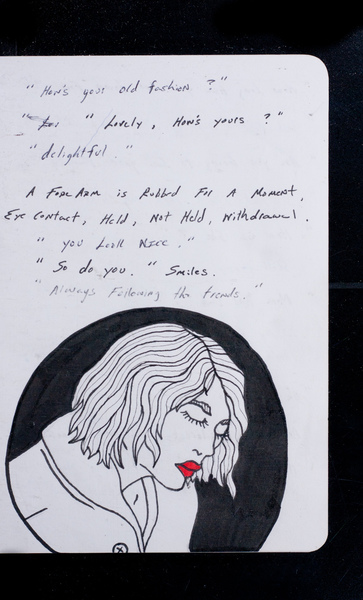 "How's your old fashion ?"
" " Lovely, How's yours ?"
"delightful."
A ForeArm is Rubbed For A Moment,
Eye Contact, Held, Not Held, Withdrawl.
" you Look Nice."
" So do you." Smiles.
" Always Following the trends."